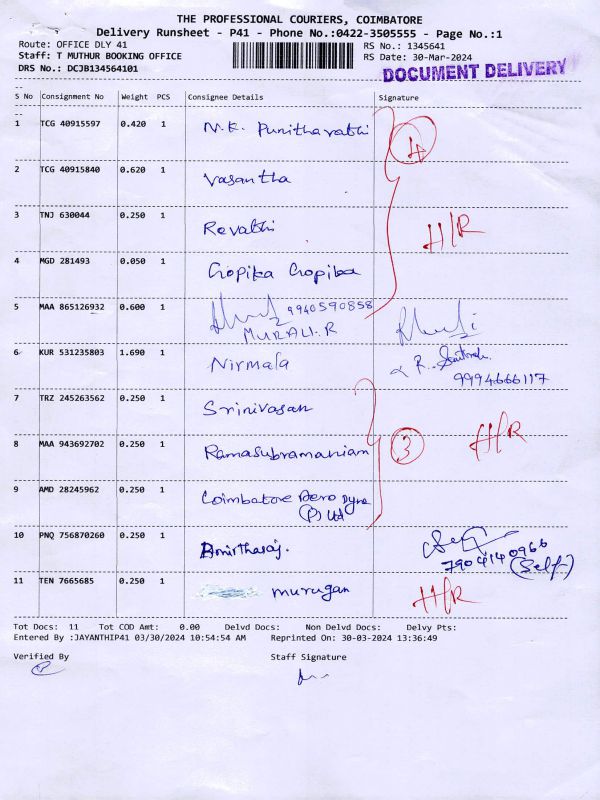 THE PROFESSIONAL COURIERS, COIMBATORE
Delivery Runsheet - P41 - Phone No.:0422-3505555 - Page No.:1
Route: OFFICE DLY 41 RS No.: 1345641
Staff: T MUTHUR BOOKING OFFICE RS Date: 30-Mar-2024
DRS No.: DCJB134564101 DOCUMENT DELIVERY
S No Consignment No Weight PCS Consignee Details Signature
1 TCG 40915597 0.420 1 N.K. Punithavathi 4
2 TCG 40915840 0.620 1 Vasantha
3 TNJ 630044 0.250 1 Revathi H/R
4 MGD 281493 0.050 1 Gopika Gopika
5 MAA 865126932 0.600 1 9940590858
MURALI.R
6 KUR 531235803 1.690 1 Nirmala R.
9994666117
7 TRZ 245263562 0.250 1 Srinivasan
8 MAA 943692702 0.250 1 Ramasubramaniam 3 H/R
9 AMD 28245962 0.250 1 Coimbatore Aero Dyne
(P) Ltd
10 PNQ 756870260 0.250 1 Amirtharaj. 7904140966
(Self)
11 TEN 7665685 0.250 1 murugan H/R
Tot Docs: 11 Tot COD Amt: 0.00 Delvd Docs: Non Delvd Docs: Delvy Pts:
Entered By :JAYANTHIP41 03/30/2024 10:54:54 AM Reprinted On: 30-03-2024 13:36:49
Verified By Staff Signature